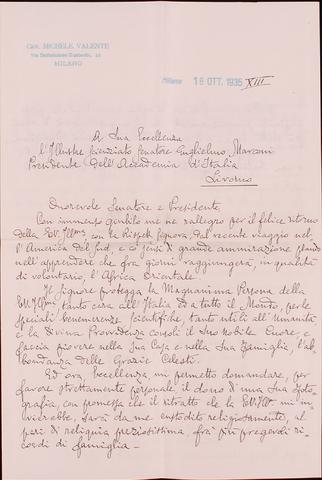 Cav. MICHELE VALENTE
MILANO
Milano 18 OTT. 1935 XIII
A Sua Eccellenza
l'Illustre Scienziato Senatore Guglielmo Marconi
Presidente dell'Accademia d'Italia
Livorno
Onorevole Senatore e Presidente,
Con immenso giubilo me ne rallegro per il felice ritorno
della E.V. Ill.ma con la Signora, dal recente viaggio nel-
l'America del Sud, e ai sensi di grande ammirazione plaudo
nell'apprendere che fra giorni raggiungerà, in qualità
di volontario, l'Africa Orientale.
Il Signore protegga la Magnanima Persona della
E.V. Ill.ma, tanto cara all'Italia ed a tutto il Mondo, per le
speciali benemerenze scientifiche, tanto utili all'Umanità
e la Divina Provvidenza consoli il Suo Nobile Cuore, e
faccia piovere nella Sua Casa e nella Sua Famiglia, l'ab-
bondanza delle Grazie Celesti.
Ed ora Eccellenza, mi permetto domandare, per
favore strettamente personale il dono di una Sua foto-
grafia, con promessa che il ritratto che la E.V. Ill. mi in-
vierebbe, sarà da me custodito religiosamente, al
pari di reliquia preziosissima, fra i più pregevoli ri-
cordi di famiglia -